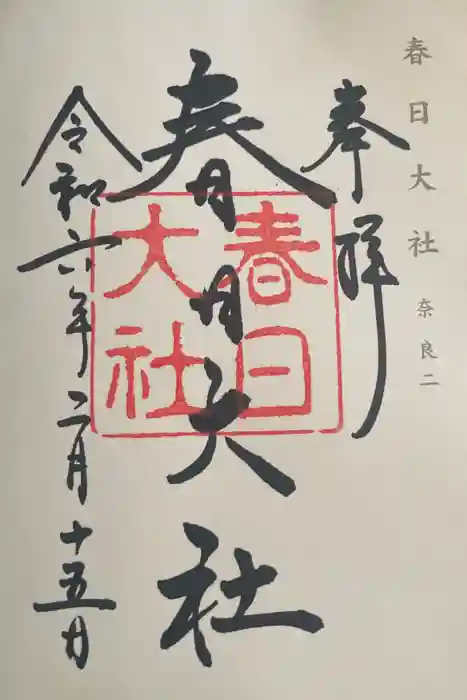 春日大社 奈良二
奉拝
春日大社
春日
大社
令和六年二月十五日